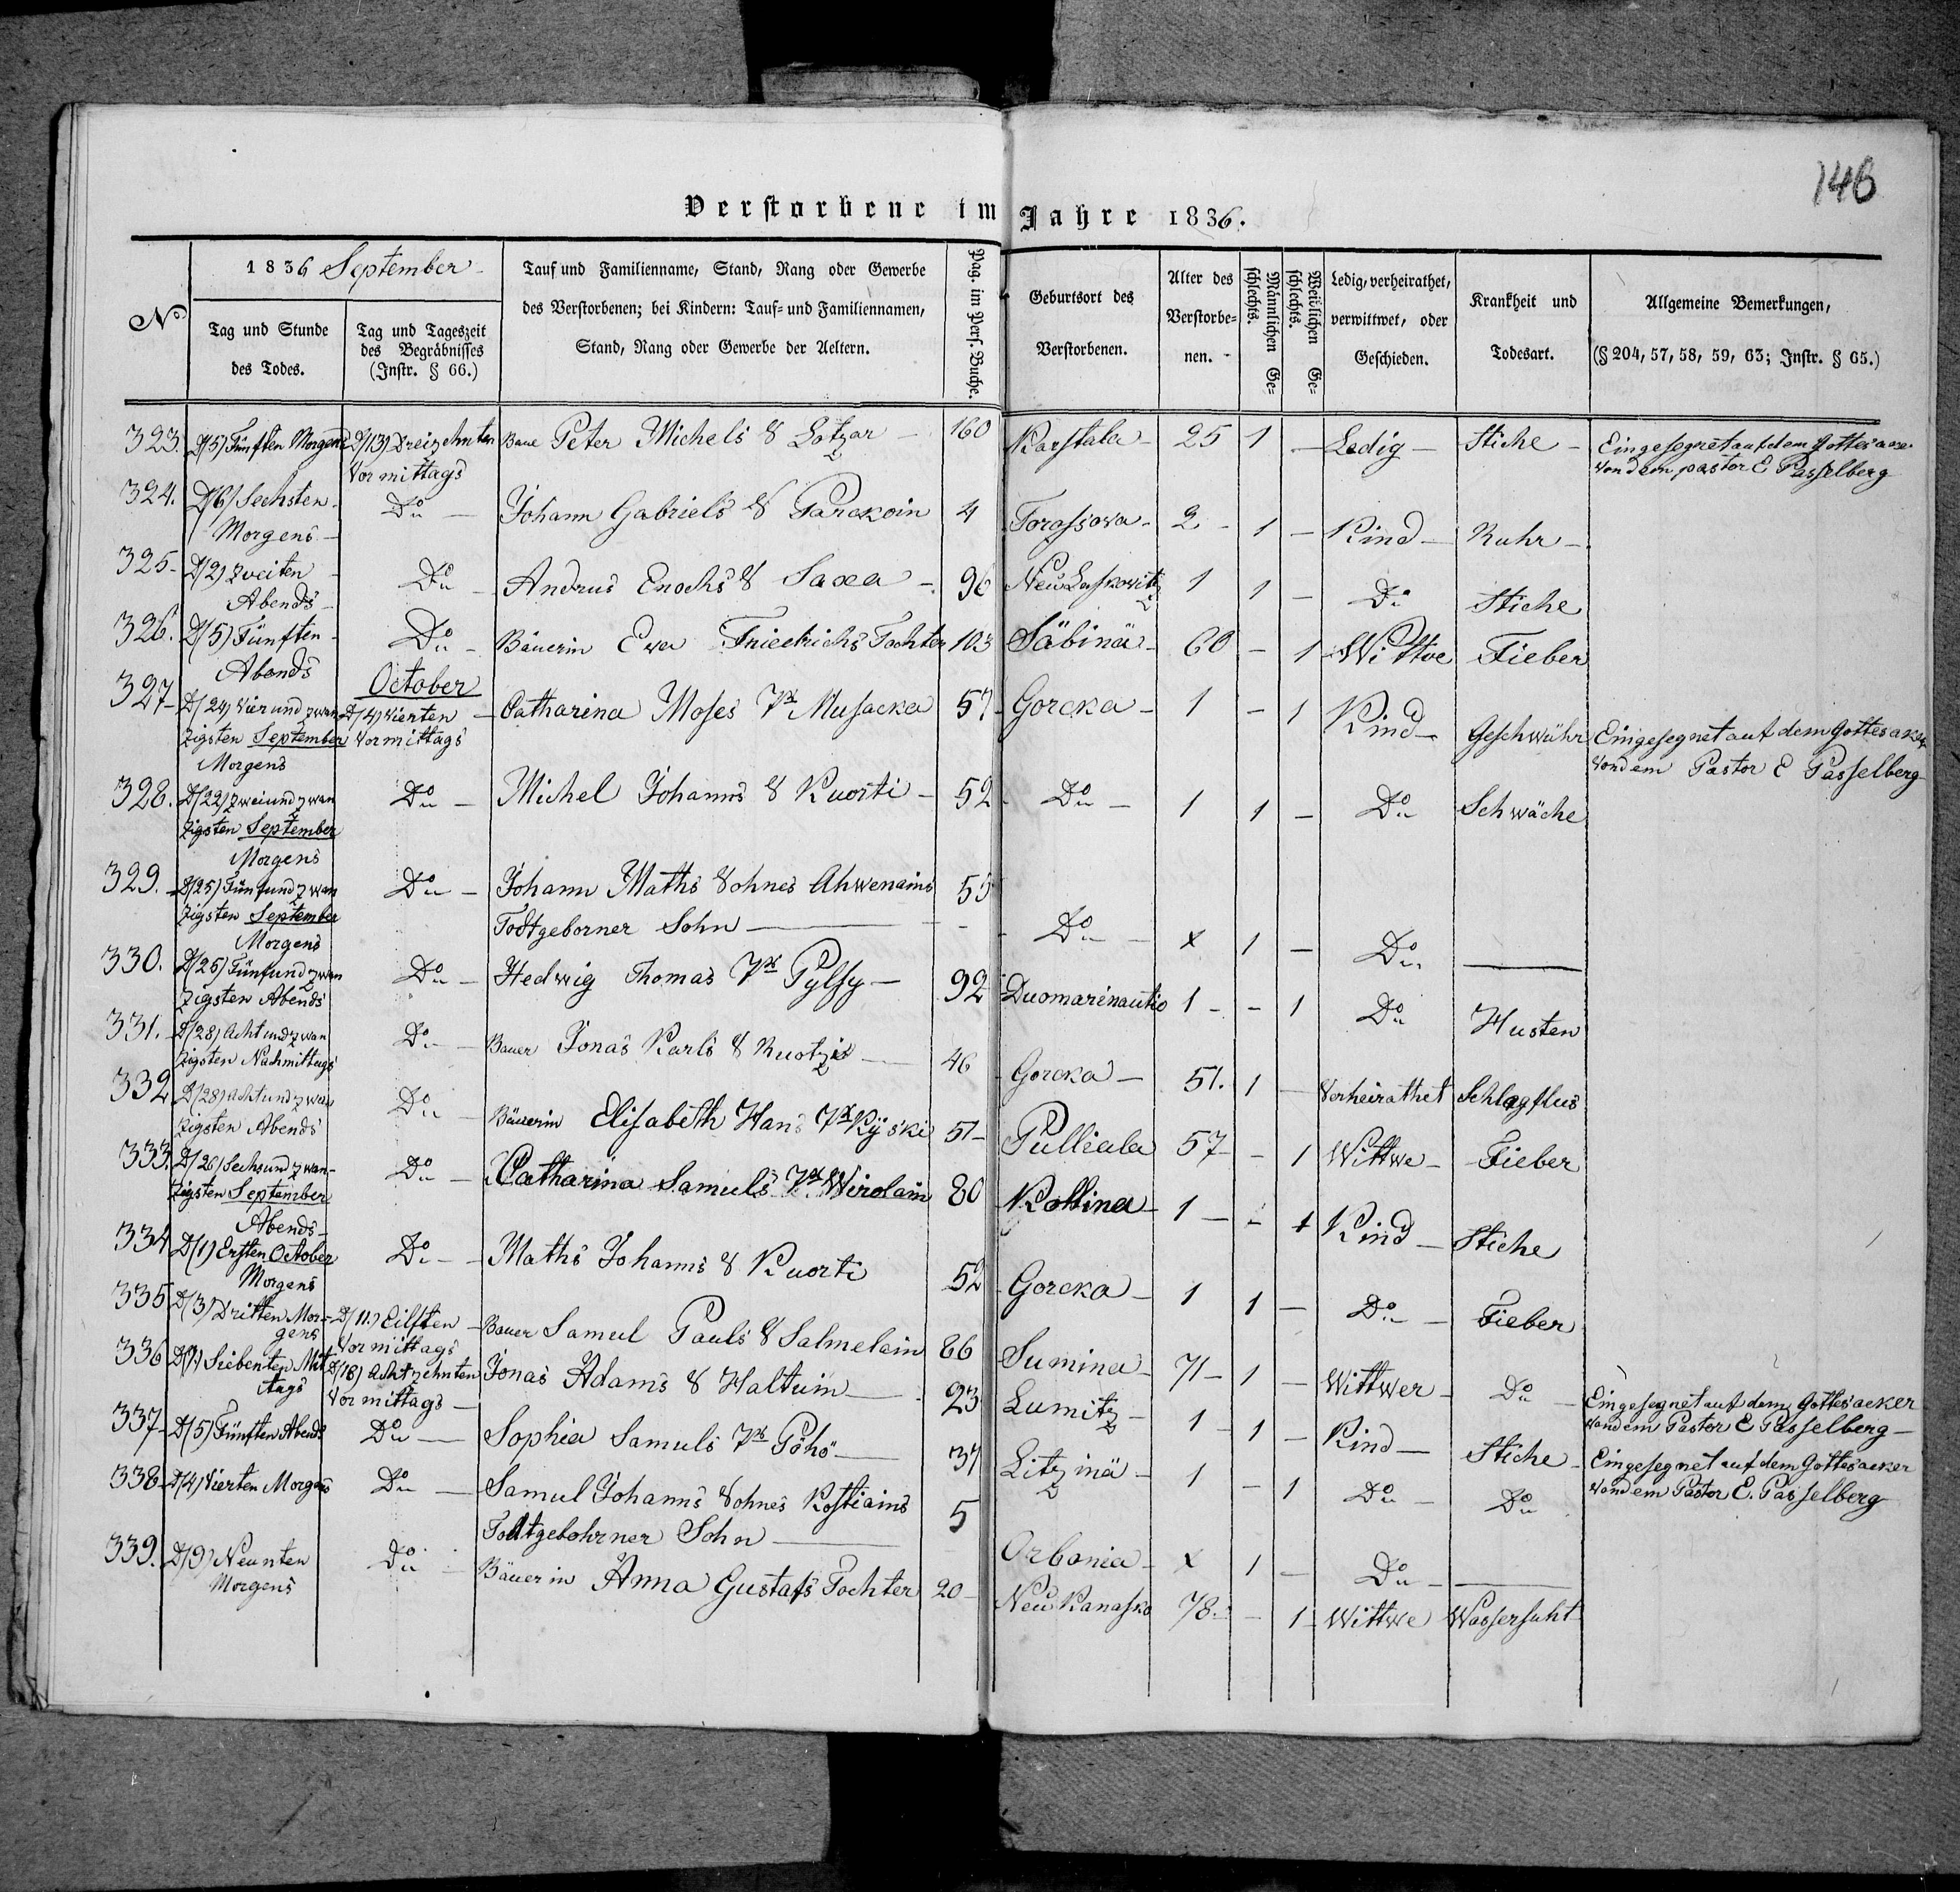 146
Verstorbene im Jahre 1836.
No
1836 September
Tag und Stunde des Todes.
Tag und Tageszeit des Begräbnisses (Instr. § 66.)
Tauf und Familienname, Stand, Rang oder Gewerbe des Verstorbenen; bei Kindern: Tauf= und Familiennamen, Stand, Rang oder Gewerbe der Aeltern.
Pag. im Pers. Buche.
Geburtsort des Verstorbenen.
Alter des Verstorbe=nen.
Männlichen Ge=schlechts.
Weiblichen Ge=schlechts.
Ledig, verheirathet, verwittwet, oder Geschieden.
Krankheit und Todesart.
Allgemeine Bemerkungen, (§ 204, 57, 58, 59, 63; Instr. § 65.)
323. D/5) Fünften Morgens D/13) Dreizehnten Vormittags Baue Peter Michels S Lotzar 160 Karstala 25 1 — Ledig Stiche Eingesegnet auf dem Gottesacke. von dem pastor E Passelberg
324. D/6) Sechsten Morgens Do Johann Gabriels S Parckoin 4 Torossowa 2 1 — Kind Ruhr
325 D/2) Zweiten Abends Do Andrus Enochs S Saxa 96 Neu Laskowitz 1 1 — Do Stiche
326. D/5) Fünften Abends Do Bäuerin Ewa Friedrichs Tochter 103 Säbinä 60 — 1 Wittwe Fieber
October
327 D/24) Vier und zwanzigsten September Morgens D/4) Vierten Vormittags Catharina Moses Tr Musacka 57 Gorcka 1 — 1 Kind Geschwühr Eingesegnet auf dem Gottesacker von dem Pastor E Passelberg
328. D/22) Zwei und zwanzigsten September Morgens Do Michel Johanns S Kuorti 52 Do 1 1 — Do Schwäche
329. D/25) Fünf und zwanzigsten September Morgens Do Johann Maths Sohnes Ahwenains 55
Todtgeborner Sohn Do x 1 — Do —
330. D/25) Fünfund zwanzigsten Abends Do Hedwig Thomas Tr Pylsy 92 Duomarinautio 1 - 1 Do Husten
331. D/28) Acht und zwanzigsten Nachmittags Do Bauer Jonas Karls S 46 Gorcka 51. 1 — Verheirathet Schlagflus
332 D/28) Acht und zwanzigsten Abends Do Bäuerin Elisabeth Hans Tr Kyski 51 Pulliala 57 - 1 Wittwe Fieber
333. D/26) Sechs und zwanzigsten September Abends Do Catharina Samuels Tr Wirolain 80 Kottina 1 - 1 Kind Stiche
334 D/1) Ersten October Morgens Do Maths Johanns S Kuorti 52 Gorcka 1 1 — Do Fieber
335 D/3) Dritten Morgens D/11.) Eilften Vormittags Bauer Samul Pauls S Salmelain 86 Sumina 71 1 — Wittwer Do
336 D/7) Siebenten Mittags D/18) Achtzehnten Vormittags Jonas Adams S Haltuin 23 Lumitz 1 1 — Kind Stiche Eingesegnet auf dem Gottesacker von dem Pastor E Passelberg
337 D/5) Fünften Abends Do Sophia Samuls Tr Pöhö 37 Litzinä 1 — 1 Do Do Eingesegnet auf dem Gottesacker von dem Pastor E. Passelberg
338 D/4) Vierten Morgens Do Samul Johanns Sohnes Kostiains 5
Todtgebohrner Sohn Orbonia x 1 — Do —
339. D/9) Neunten Morgens Do Bäuerin Anna Gustafs Tochter 20 Neu Kanasko 78. — 1 Wittwe Wassersuht